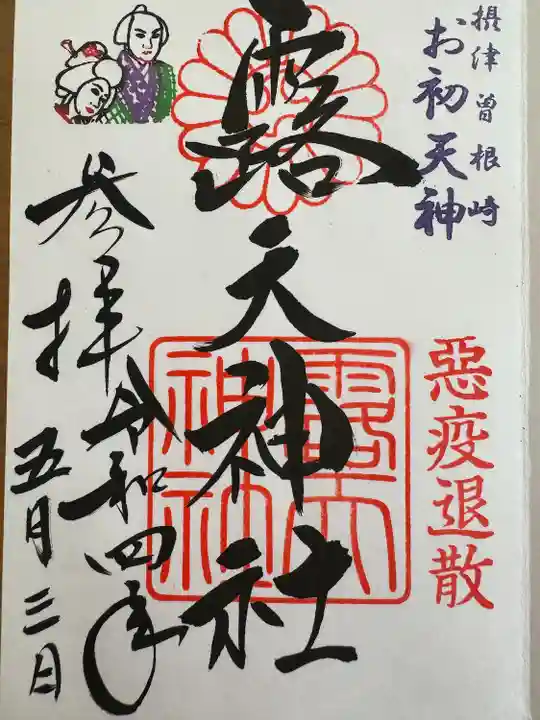 摂津曽根崎
お初天神
惡疫退散
露天神社
露天神社
参拝
令和四年
五月三日